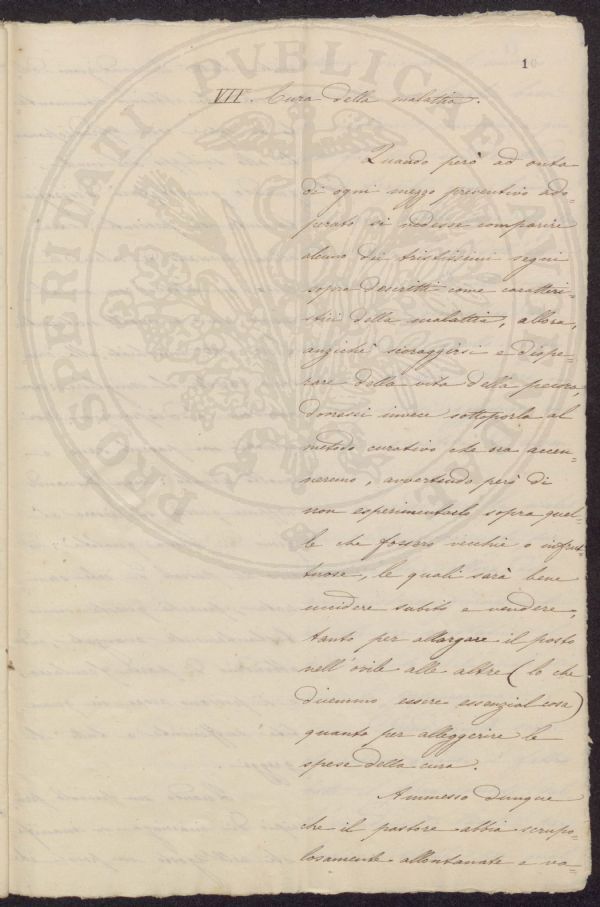 10
VII. Cura della malattia.
Quando però ad onta
di ogni mezzo preventivo ado-
perato si vedesse comparire
alcuno dei tristissimi segni
sopra descritti come caratteri-
stici della malattia, allora,
anzichè scoraggirsi e dispe-
rare della vita della pecora,
dovrassi invece sottoporla al
metodo curativo che ora accen-
neremo, avvertendo però di
non esperimentarlo sopra quel-
le che fossero vecchie o infrut-
tuose, le quali sarà bene
uccidere subito e vendere,
tanto per allargare il posto
nell'ovile alle altre (lo che
dicemmo essere essenzial cosa)
quanto per alleggerire le
spese della cura.
Ammesso dunque
che il pastore abbia scrupo-
losamente allontanate e va-
PROSPERITATI PVBLICAE AVGENDAE